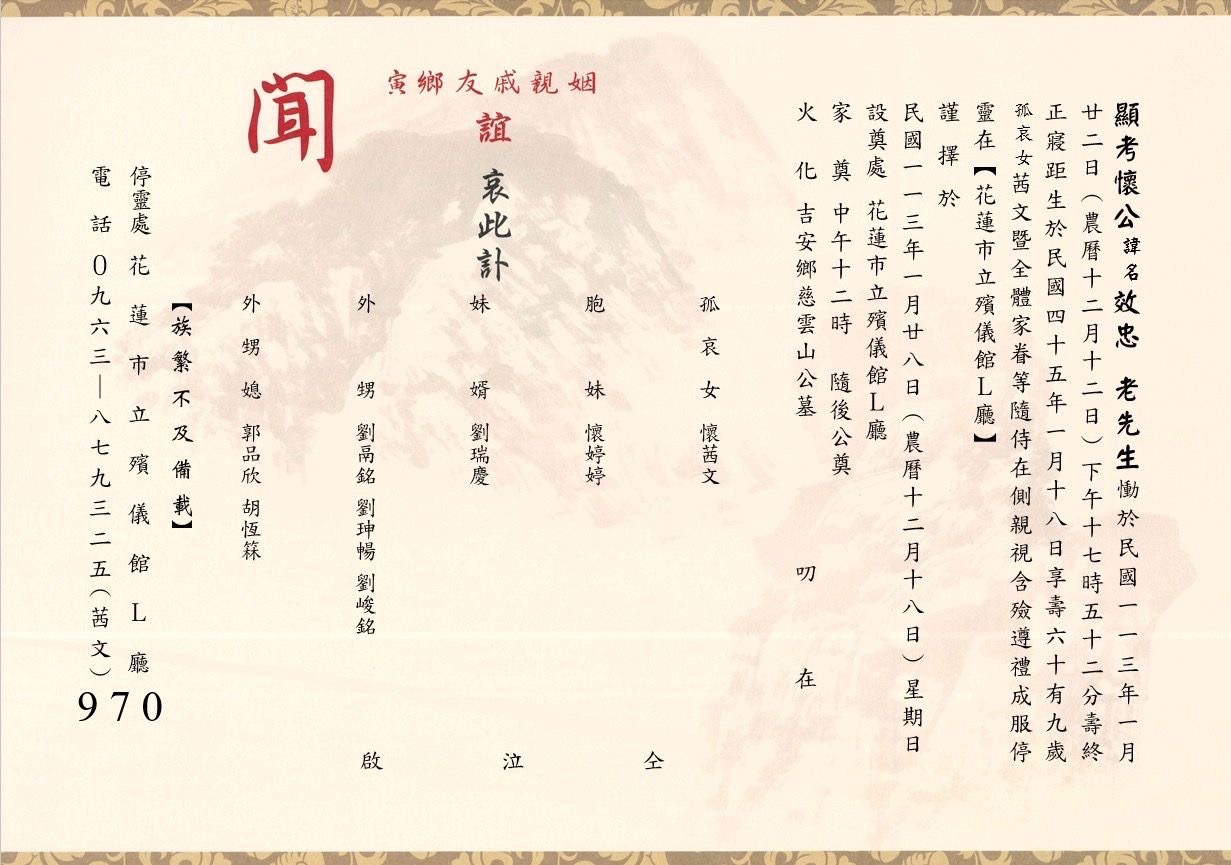 顯考懷公諱名效忠 老先生慟於民國一一三年一月
廿二日（農曆十二月十二日）下午十七時五十二分壽終
正寢距生於民國四十五年一月十八日享壽六十有九歲
孤哀女茜文暨全體家眷等隨侍在側親視含殮遵禮成服停
靈在【花蓮市立殯儀館L廳】
謹擇於
民國一一三年一月廿八日（農曆十二月十八日）星期日
設奠處 花蓮市立殯儀館L廳
家奠 中午十二時 隨後公奠
火化 吉安鄉慈雲山公墓
叨在
姻親戚友鄉寅
誼
哀此訃
聞
孤哀女 懷茜文
胞妹 懷婷婷
妹婿 劉瑞慶
外甥 劉鬲銘 劉珅暢 劉峻銘
外甥媳 郭品欣 胡恆箖
仝泣啟
【族繁不及備載】
停靈處 花蓮市立殯儀館L廳
電話 0九六三—八七九三二五（茜文）
970